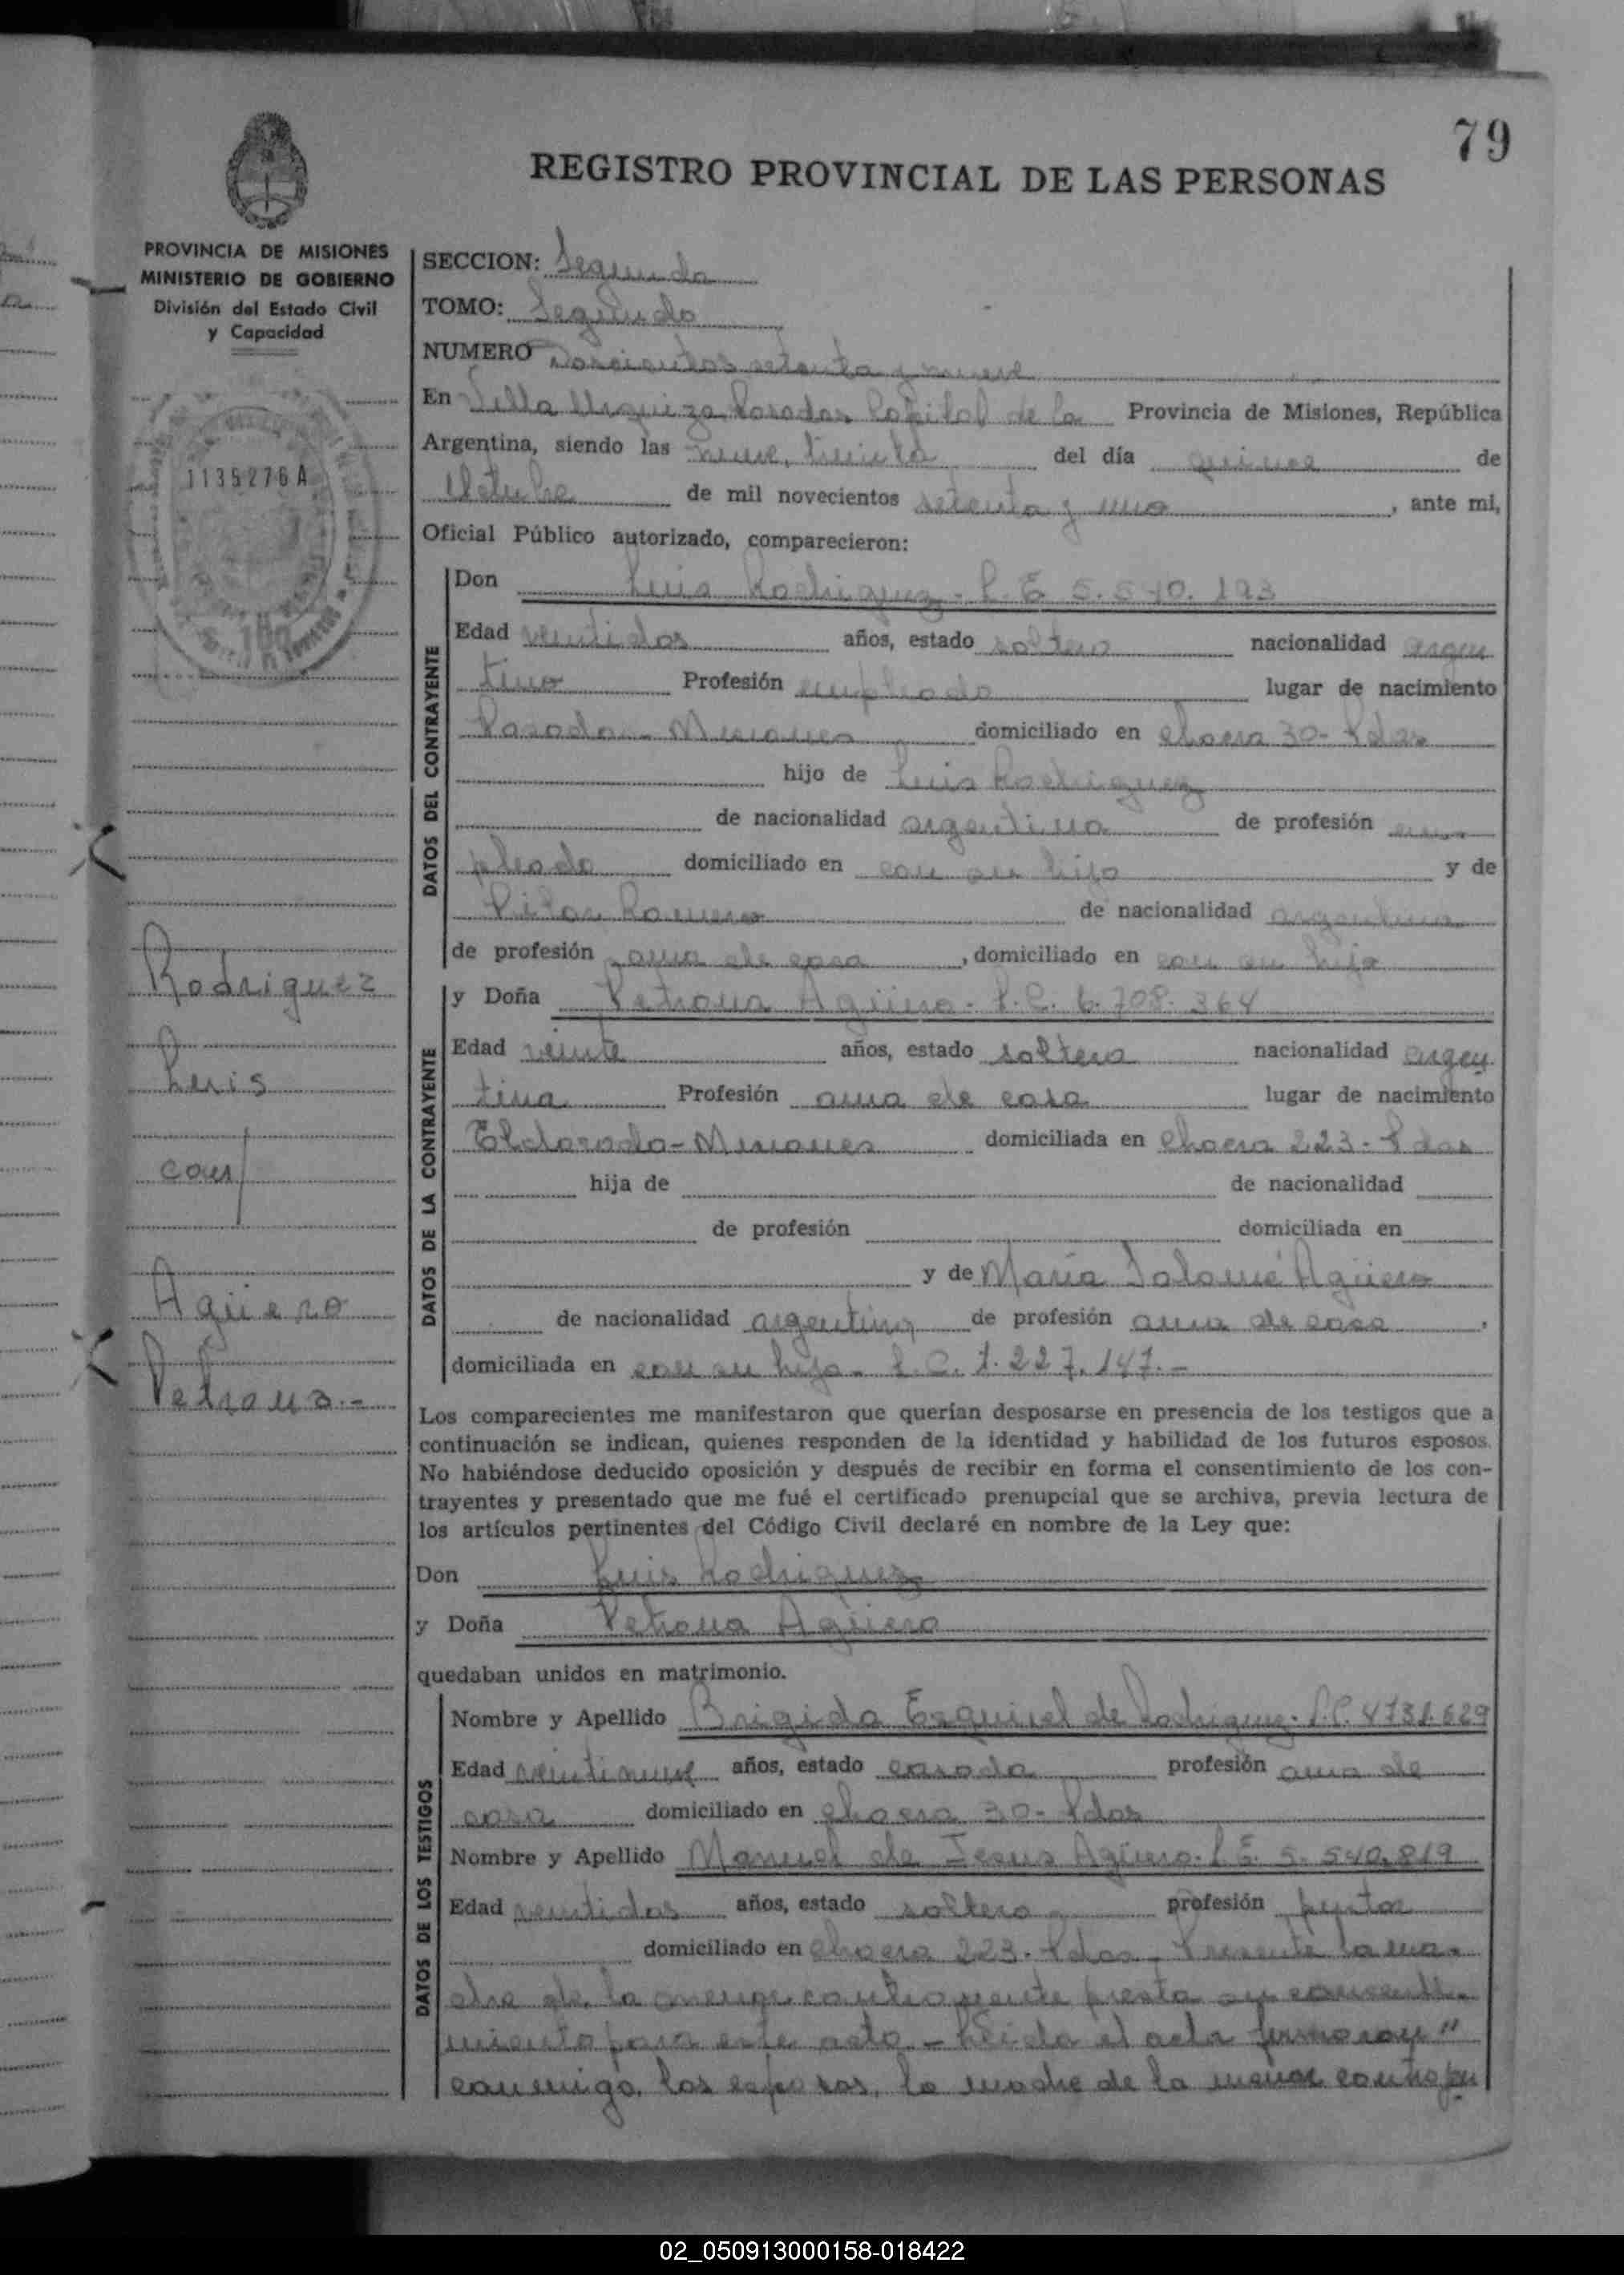 79
REGISTRO PROVINCIAL DE LAS PERSONAS
PROVINCIA DE MISIONES
MINISTERIO DE GOBIERNO
División del Estado Civil
y Capacidad
1135276 A
Rodriguez
Luis
con
Agüero
Petrona.-
SECCION: Segunda
TOMO: Segundo
NUMERO Doscientos setenta y nueve
En Villa Urquiza Posadas Capital de la Provincia de Misiones, República
Argentina, siendo las nueve, treinta del día quince de
Octubre de mil novecientos setenta y uno, ante mi,
Oficial Público autorizado, comparecieron:
DATOS DEL CONTRAYENTE
Don Luis Rodriguez - L. E. 5.540.193
Edad veintidos años, estado soltero nacionalidad argen
tino Profesión empleado lugar de nacimiento
Posadas - Misiones domiciliado en chacra 30 - Pdas
hijo de Luis Rodriguez
de nacionalidad argentina de profesión em
pleado domiciliado en con su hijo y de
Pilar Romero de nacionalidad argentina
de profesión ama de casa, domiciliado en con su hijo
DATOS DE LA CONTRAYENTE
y Doña Petrona Agüero - L.C. 6.708.364
Edad veinte años, estado soltera nacionalidad argen
tina Profesión ama de casa lugar de nacimiento
Eldorado - Misiones domiciliada en chacra 223 - Pdas
hija de de nacionalidad
de profesión domiciliada en
y de María Salomé Agüero
de nacionalidad argentina de profesión ama de casa,
domiciliada en con su hija - L.C. 1.227.147.-
Los comparecientes me manifestaron que querían desposarse en presencia de los testigos que a
continuación se indican, quienes responden de la identidad y habilidad de los futuros esposos.
No habiéndose deducido oposición y después de recibir en forma el consentimiento de los con-
trayentes y presentado que me fué el certificado prenupcial que se archiva, previa lectura de
los artículos pertinentes del Código Civil declaré en nombre de la Ley que:
Don Luis Rodriguez
y Doña Petrona Agüero
quedaban unidos en matrimonio.
DATOS DE LOS TESTIGOS
Nombre y Apellido Brigida Esquivel de Rodriguez - L.C. 4731.629
Edad veintinueve años, estado casada profesión ama de
casa domiciliado en chacra 30 - Pdas
Nombre y Apellido Manuel de Jesus Agüero - L.E. 5.540.819
Edad veintidos años, estado soltero profesión pintor
domiciliado en chacra 223 - Pdas - Presente la ma-
dre de la menor contrayente presta su consenti-
miento para este acto - Leida el acta firmaron"
conmigo, los esposos, la madre de la menor contrayen
02_050913000158-018422